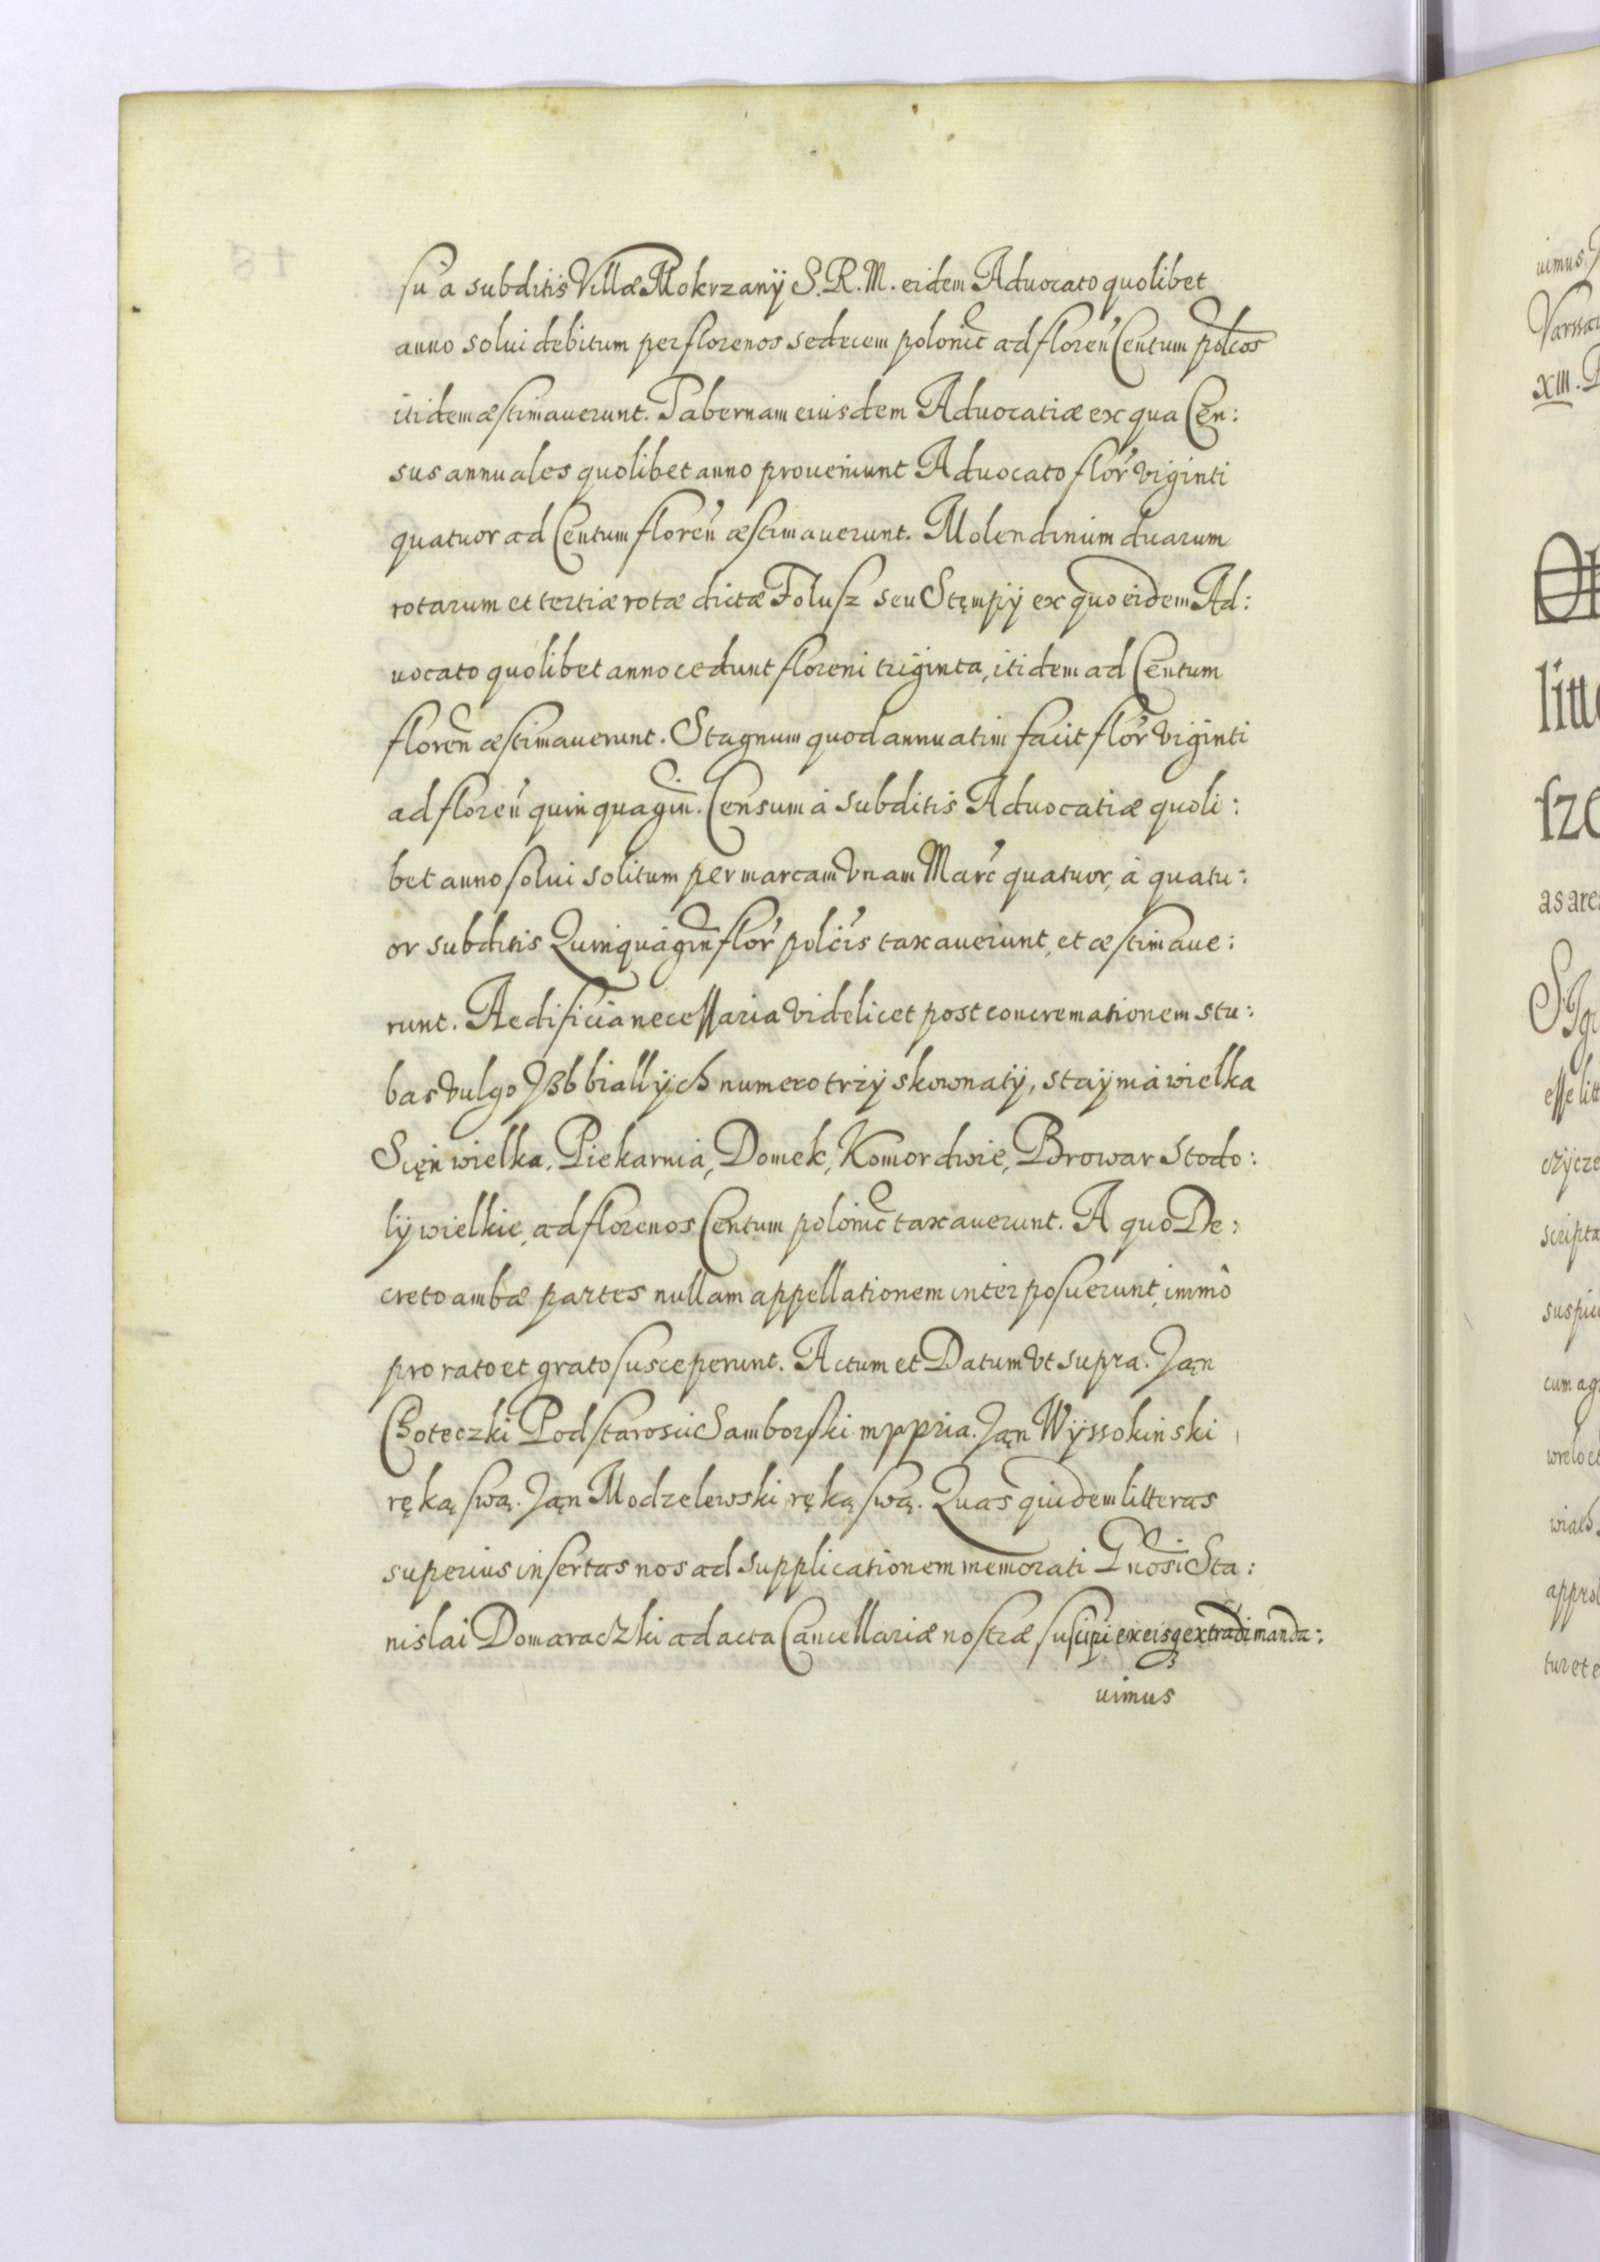 su à subditis Villæ Mokrzany S. R. M. eidem Advocato quolibet
anno solui debitum per florenos sedecem polonic ad floren Centum polcos
itidem æstimauerunt. Tabernam eiusdem Advocatiæ ex qua Cen:
sus annuales quolibet anno proueniunt Advocato flor viginti
quatuor ad Centum floren æstimauerunt. Molendinum duarum
rotarum et tertiæ rotæ dictæ Folusz seu Stępÿ ex quo eidem Ad:
uocato quolibet anno cedunt floreni triginta, itidem ad Centum
floren æstimauerunt. Stagnum quod annuatim facit flor viginti
ad floren quinquagin. Censum à subditis Advocatiæ quoli:
bet anno solui solitum per marcam vnam Marc quatuor, à quatu:
or subditis Quinquagin flor polcis taxauerunt, et æstimaue:
runt. Aedificia necessaria videlicet post concremationem stu:
bas vulgo Jzb biallÿch numero trzÿ skownatÿ, staÿnia wielka
Scięn wielka, Piekarnia, Domek, Komor dwie, Browar Stodo:
lÿ wielkie, ad florenos Centum polonic taxauerunt. A quo De:
creto ambæ partes nullam appellationem interposuerunt, immô
pro rato et grato susceperunt. Actum et Datum vt supra. Jąn
Choteczki Podstarosci Samborski mppria. Jąn Wÿssokinski
ręką swą. Jąn Modzelewski ręką swą. Quas quidem litteras
superius insertas nos ad supplicationem memorati Gnosi Sta:
nislai Domaraczki ad acta Cancellariæ nostræ suscipi ex eisq extradi manda:
uimus
uimus
Varssau
XIII.
litte
sze
as are
esse litt
czÿcze
scripta
suspic
cum ag